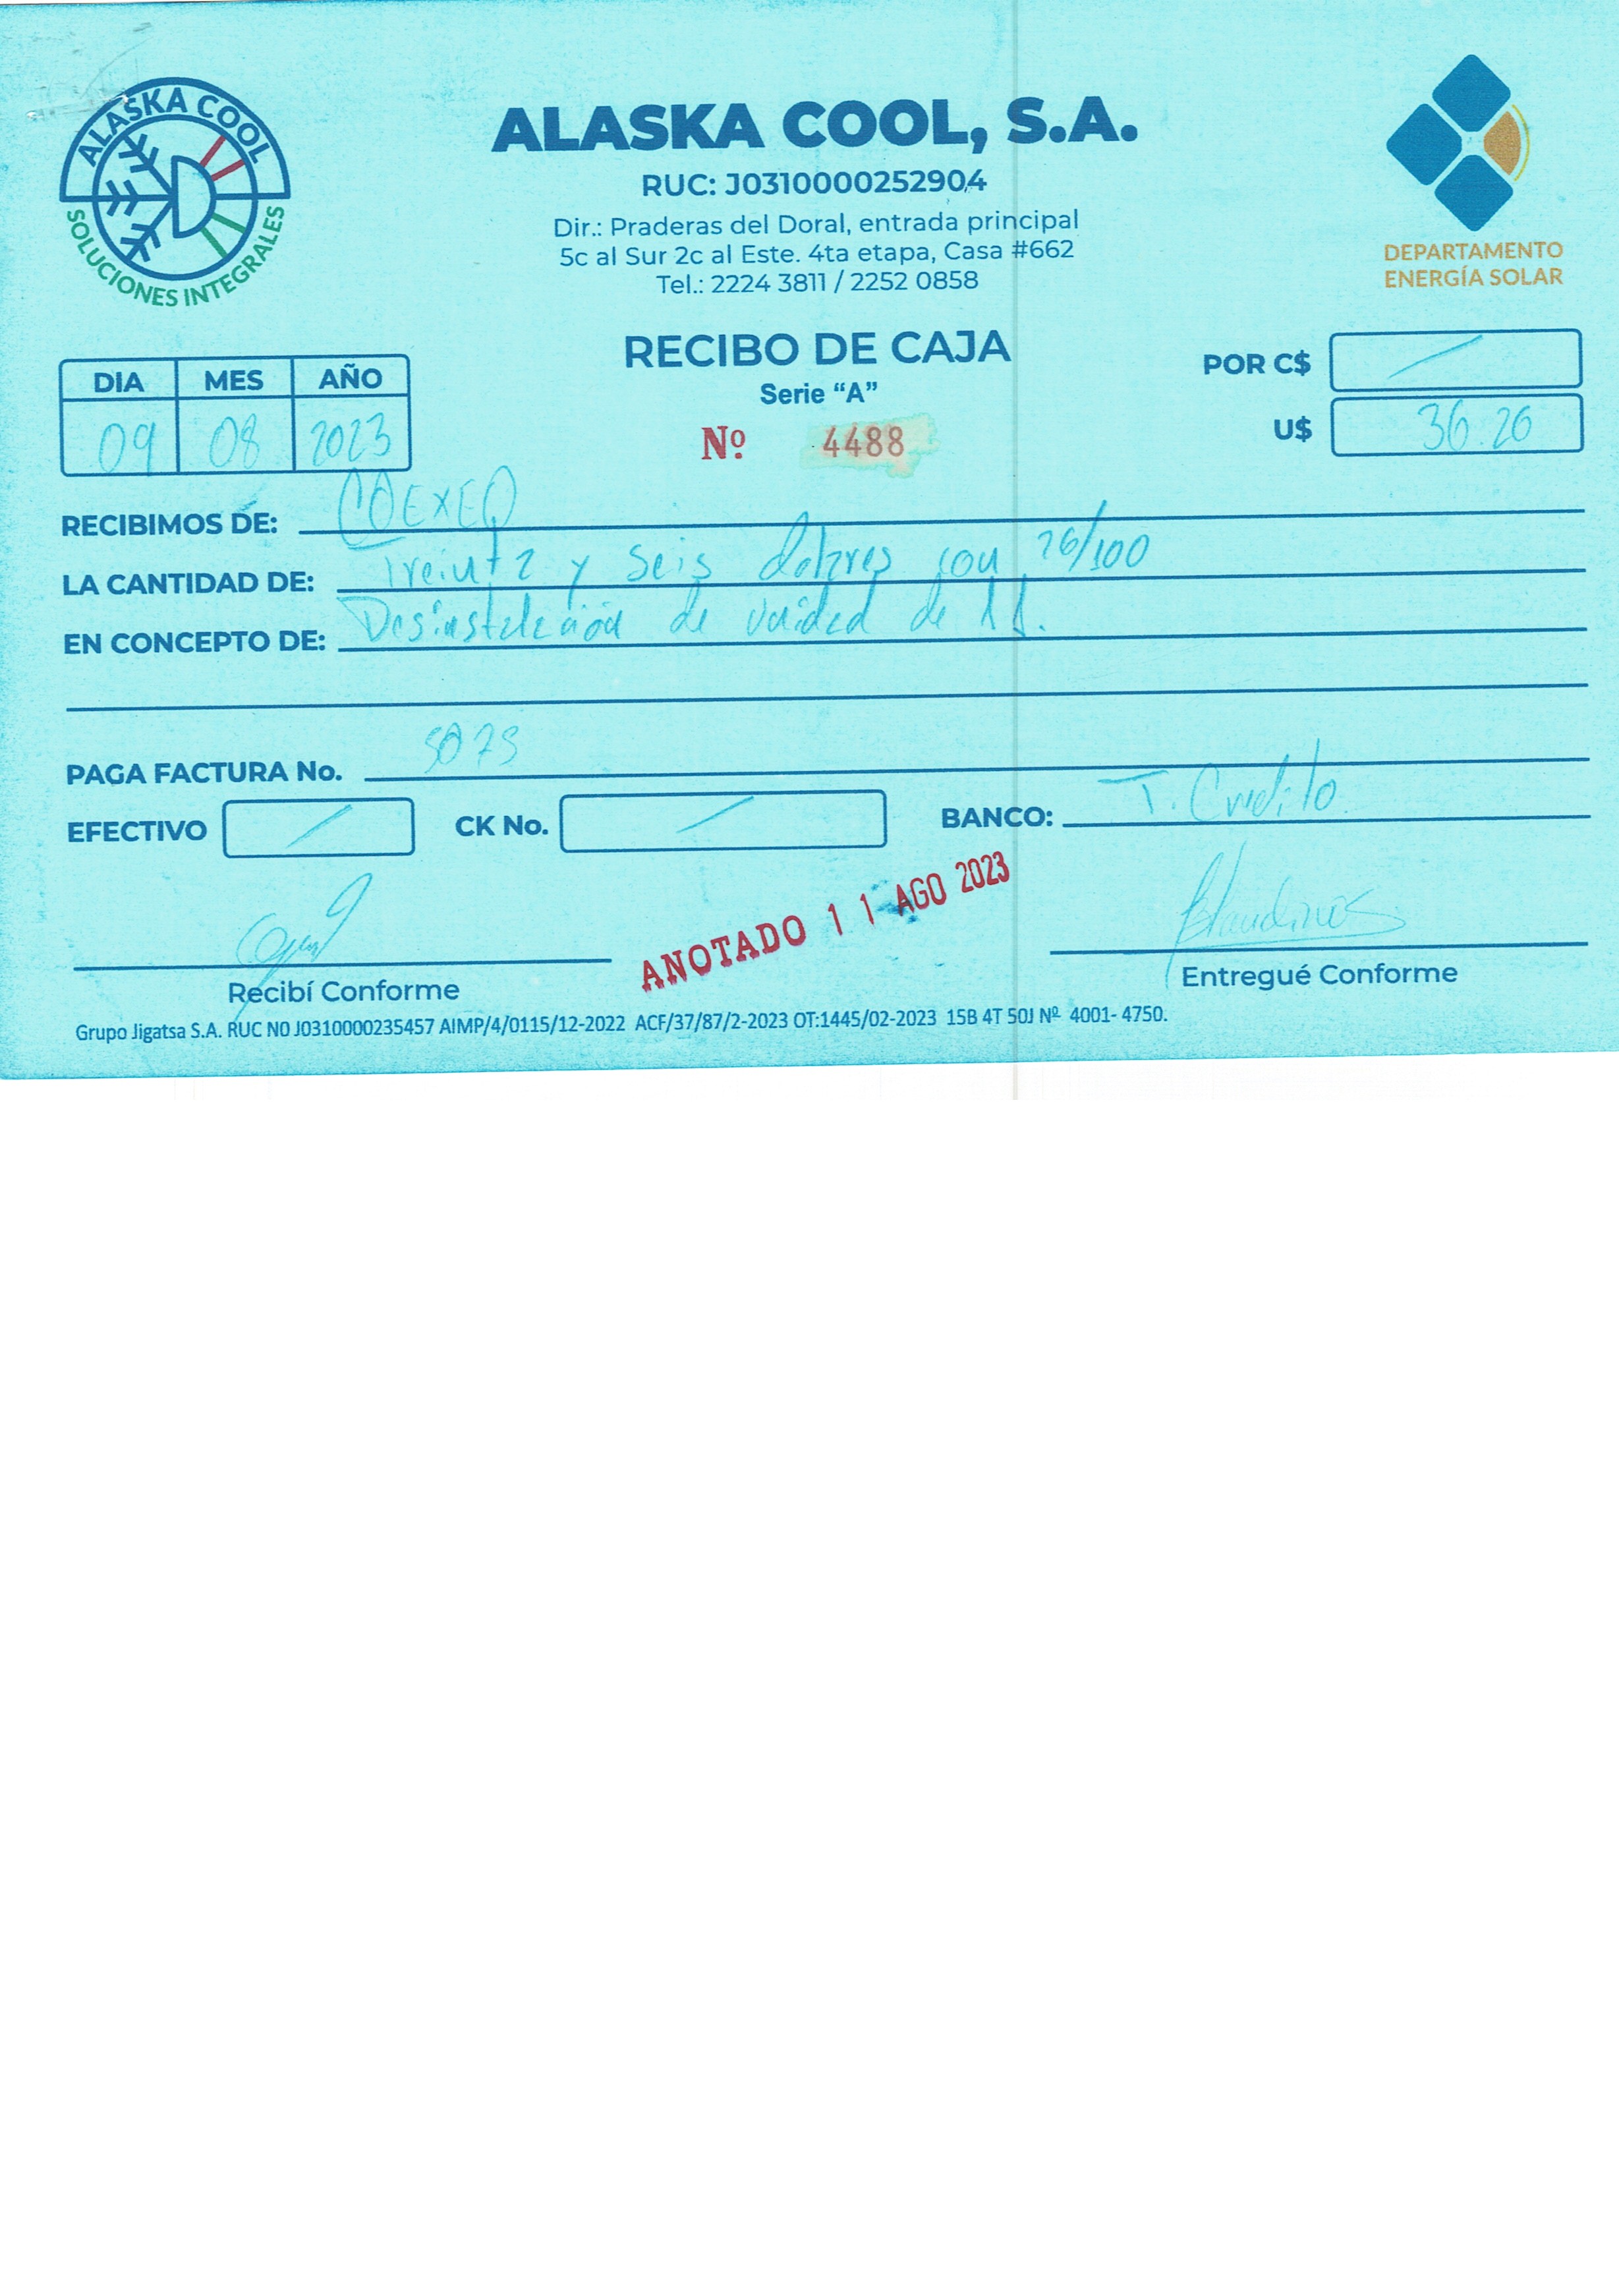 ALASKA COOL
SOLUCIONES INTEGRALES
ALASKA COOL, S.A.
RUC: J0310000252904
Dir.: Praderas del Doral, entrada principal
5c al Sur 2c al Este. 4ta etapa, Casa #662
Tel.: 2224 3811 / 2252 0858
DEPARTAMENTO
ENERGÍA SOLAR
RECIBO DE CAJA
Serie “A”
Nº 4488
DIA MES AÑO
09 08 2023
POR C$ /
U$ 36.26
RECIBIMOS DE: COEXEQ
LA CANTIDAD DE: Treinta y seis dolares con 26/100
EN CONCEPTO DE: Desinstalación de unidad de
PAGA FACTURA No.
EFECTIVO / CK No. / BANCO: T. Credito
ANOTADO 11 AGO 2023
Recibí Conforme
Entregué Conforme
Grupo Jigatsa S.A. RUC N0 J0310000235457 AIMP/4/0115/12-2022 ACF/37/87/2-2023 OT:1445/02-2023 15B 4T 50J Nº 4001- 4750.